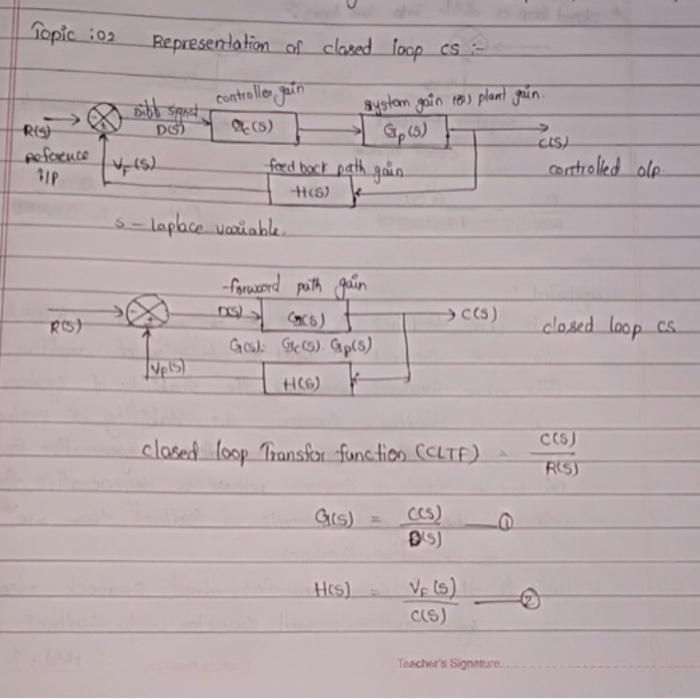 Topic :02 Representation of closed loop cs :-
controller gain system gain (or) plant gain.
R(s) Diff signal D(s) Gc(s) Gp(s) C(s)
reference i/p VF(s) feed back path gain controlled o/p.
H(s)
s - Laplace variable.
forward path gain
R(s) D(s) G(s) C(s) closed loop cs
G(s) = Gc(s). Gp(s)
VF(s) H(s)
closed loop Transfer function (CLTF) = C(s) / R(s)
G(s) = C(s) / D(s) — ①
H(s) = VF(s) / C(s) — ②
Teacher's Signature